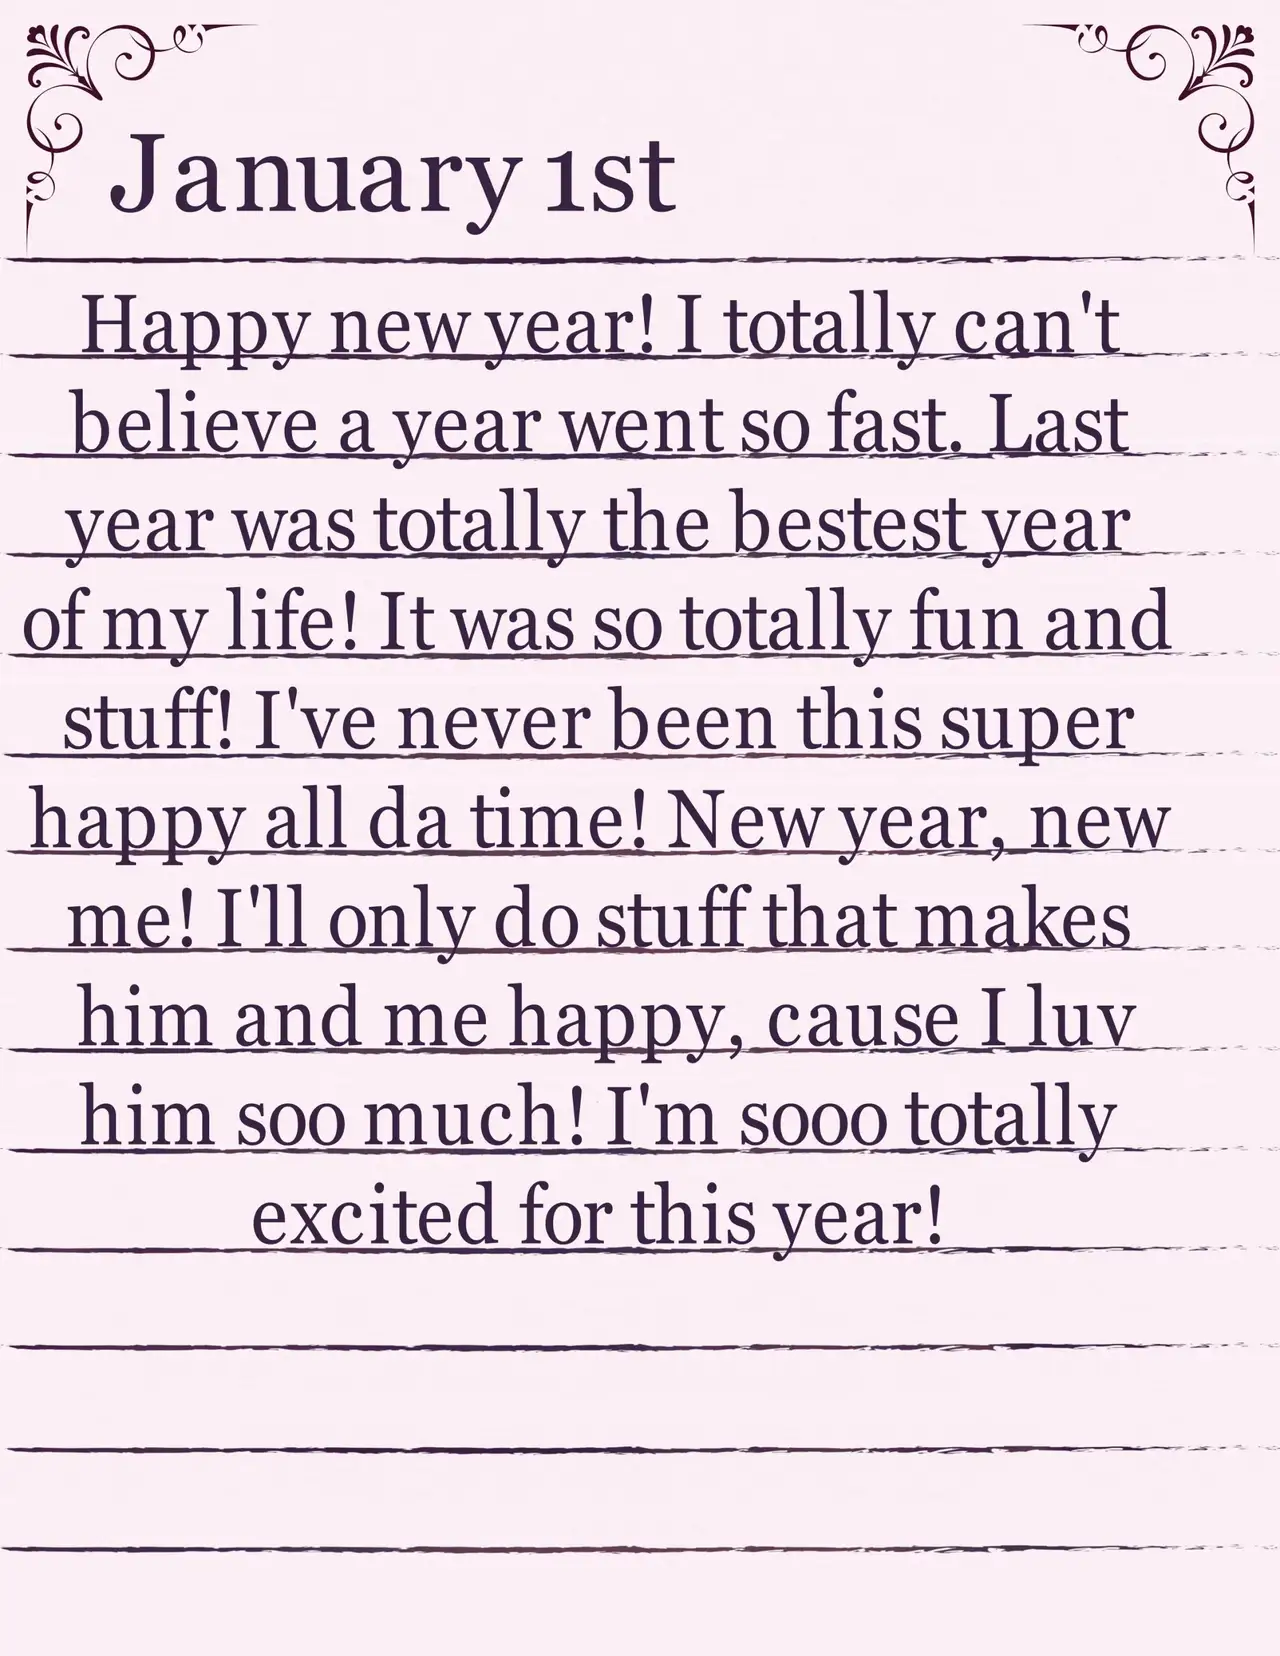 January 1st
Happy new year! I totally can't
believe a year went so fast. Last
year was totally the bestest year
of my life! It was so totally fun and
stuff! I've never been this super
happy all da time! New year, new
me! I'll only do stuff that makes
him and me happy, cause I luv
him soo much! I'm sooo totally
excited for this year!